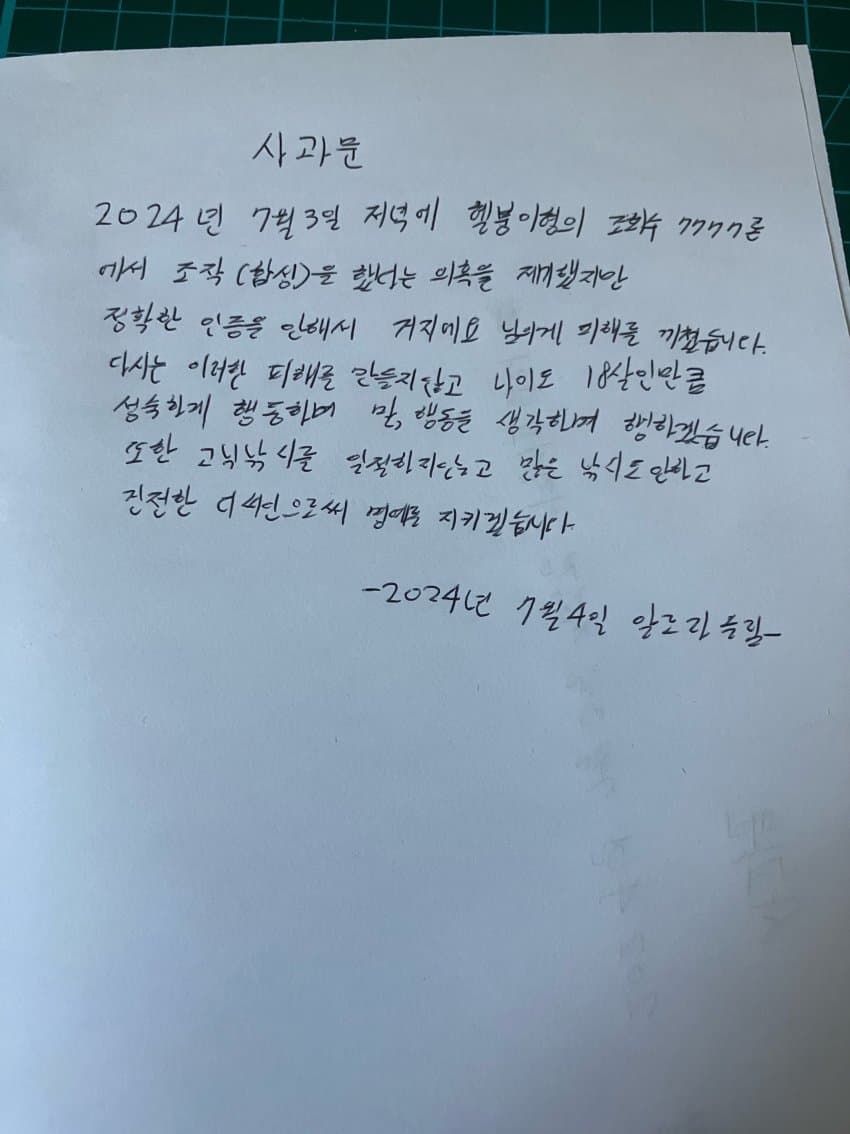 사과문
2024년 7월 3일 저녁에 헬붕이형의 조회수 7777론
에서 조작(합성)을 했다는 의혹을 제기했지만
정확한 인증을 안해서 거지에요 님에게 피해를 끼쳤습니다.
다시는 이러한 피해를 만들지않고 나이도 18살인만큼
성숙하게 행동하며 말, 행동을 생각하며 행하겠습니다.
또한 고닉낚시를 일절하지않고 많은 낚시도안하고
진전한 으로써 명예를 지키겠습니다
-2024년 7월4일 알고리즘-